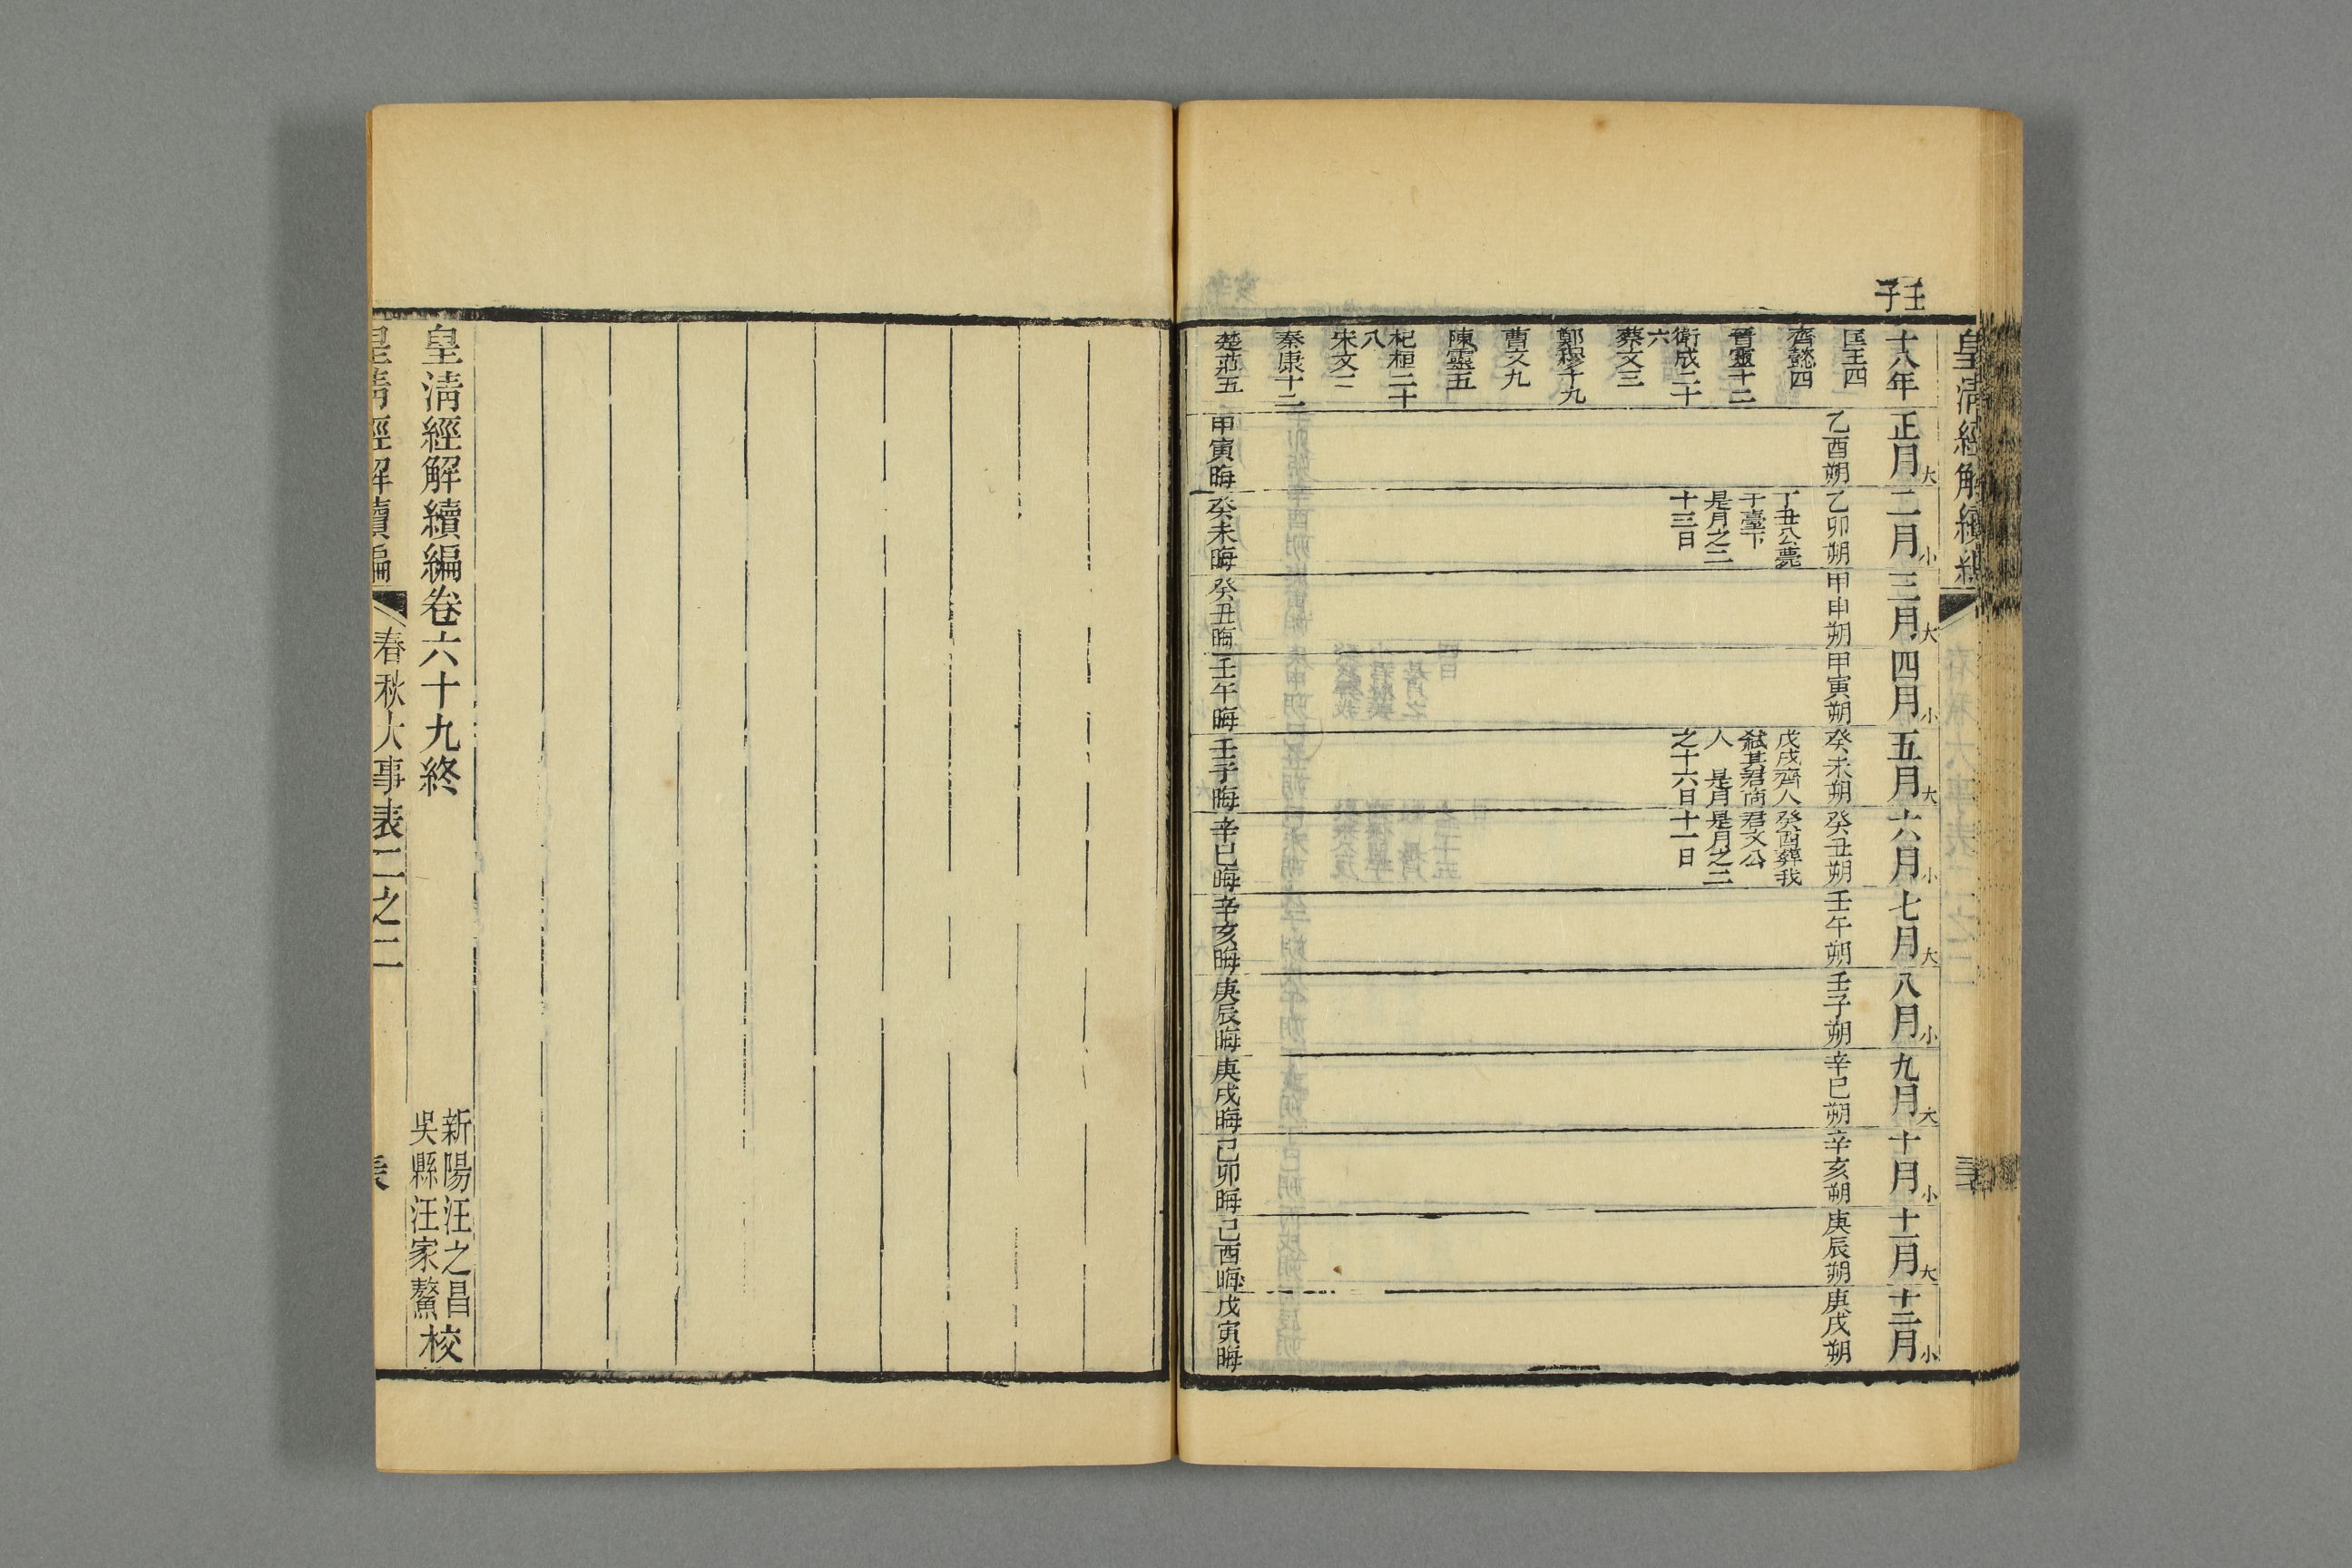 皇清經解續編
壬子
十八年
匡王四
齊懿四
晉靈十二
衛成二十六
蔡文三
鄭穆十九
曹文九
陳靈五
杞桓二十八
宋文二
秦康十二
楚莊五
正月大
乙酉朔
甲寅晦
二月小
乙卯朔
丁丑公薨
于臺下
是月之二
十三日
癸未晦
三月大
甲申朔
癸丑晦
四月小
甲寅朔
壬午晦
五月大
癸未朔
戊戌齊人
弒其君商
人 是月
之十六日
壬子晦
六月小
癸丑朔
癸酉葬我
君文公
是月之二
十一日
辛巳晦
七月大
壬午朔
辛亥晦
八月小
壬子朔
庚辰晦
九月大
辛巳朔
庚戌晦
十月小
辛亥朔
己卯晦
十一月大
庚辰朔
己酉晦
十二月小
庚戌朔
戊寅晦
皇清經解續編卷六十九終
新陽汪之昌
吳縣汪家驁
校
皇清經解續編
春秋大事表二之二